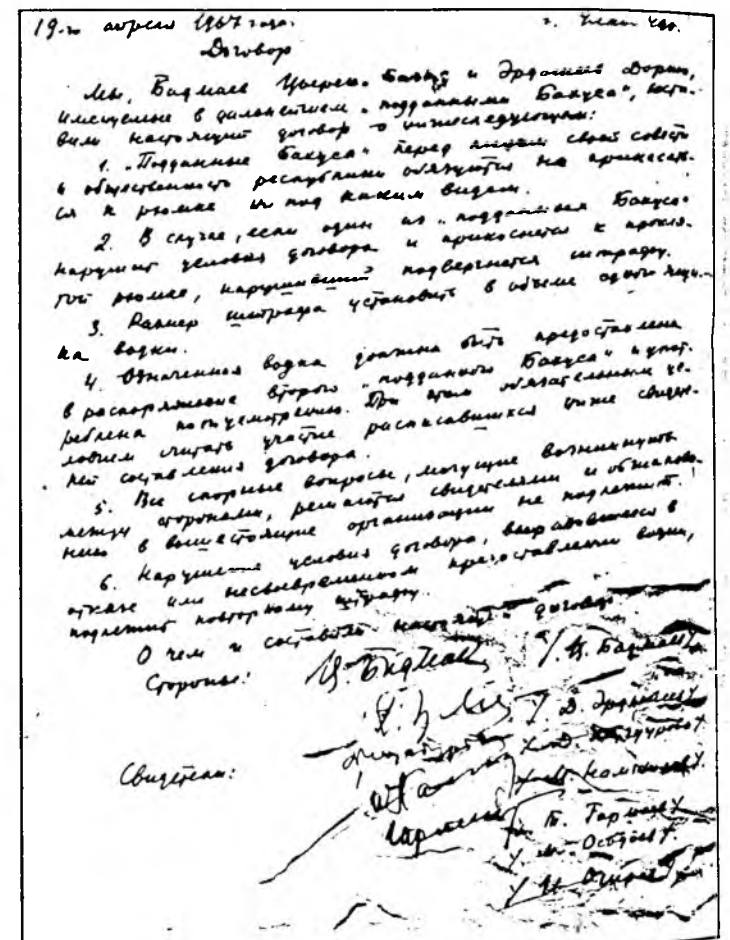 19-го апреля 1967 года. г. Улан-Удэ.
Договор
Мы, Бадмаев Цырен-Базар и Эрдынеев Доржо,
именуемые в дальнейшем „подданными Бахуса", соста-
вили настоящий договор о нижеследующем:
1. „Подданные Бахуса" перед лицом своей совести
и общественности республики обязуются не прикасать-
ся к рюмке ни под каким видом.
2. В случае, если один из „подданных Бахуса"
нарушит условия договора и прикоснется к прокля-
той рюмке, нарушивший подвергнется штрафу.
3. Размер штрафа установить в объеме одного ящи-
ка водки.
4. Означенная водка должна быть предоставлена
в распоряжение второго „подданного Бахуса" и упот-
реблена по усмотрению. При этом обязательным ус-
ловием считать участие расписавшихся ниже свиде-
лей составления договора.
5. Все спорные вопросы, могущие возникнуть
между сторонами, решаются свидетелями и обжалова-
нию в вышестоящие организации не подлежит.
6. Нарушение условия договора, выразившееся в
отказе или несвоевременном предоставлении водки,
подлежит повторному штрафу.
О чем и составили настоящий договор
Стороны: Ц. Бадмаев / Ц. Бадмаев /
/ Д. Эрдынеев /
Свидетели:
/ Т. Гармаев /
/ Н. Очиров /